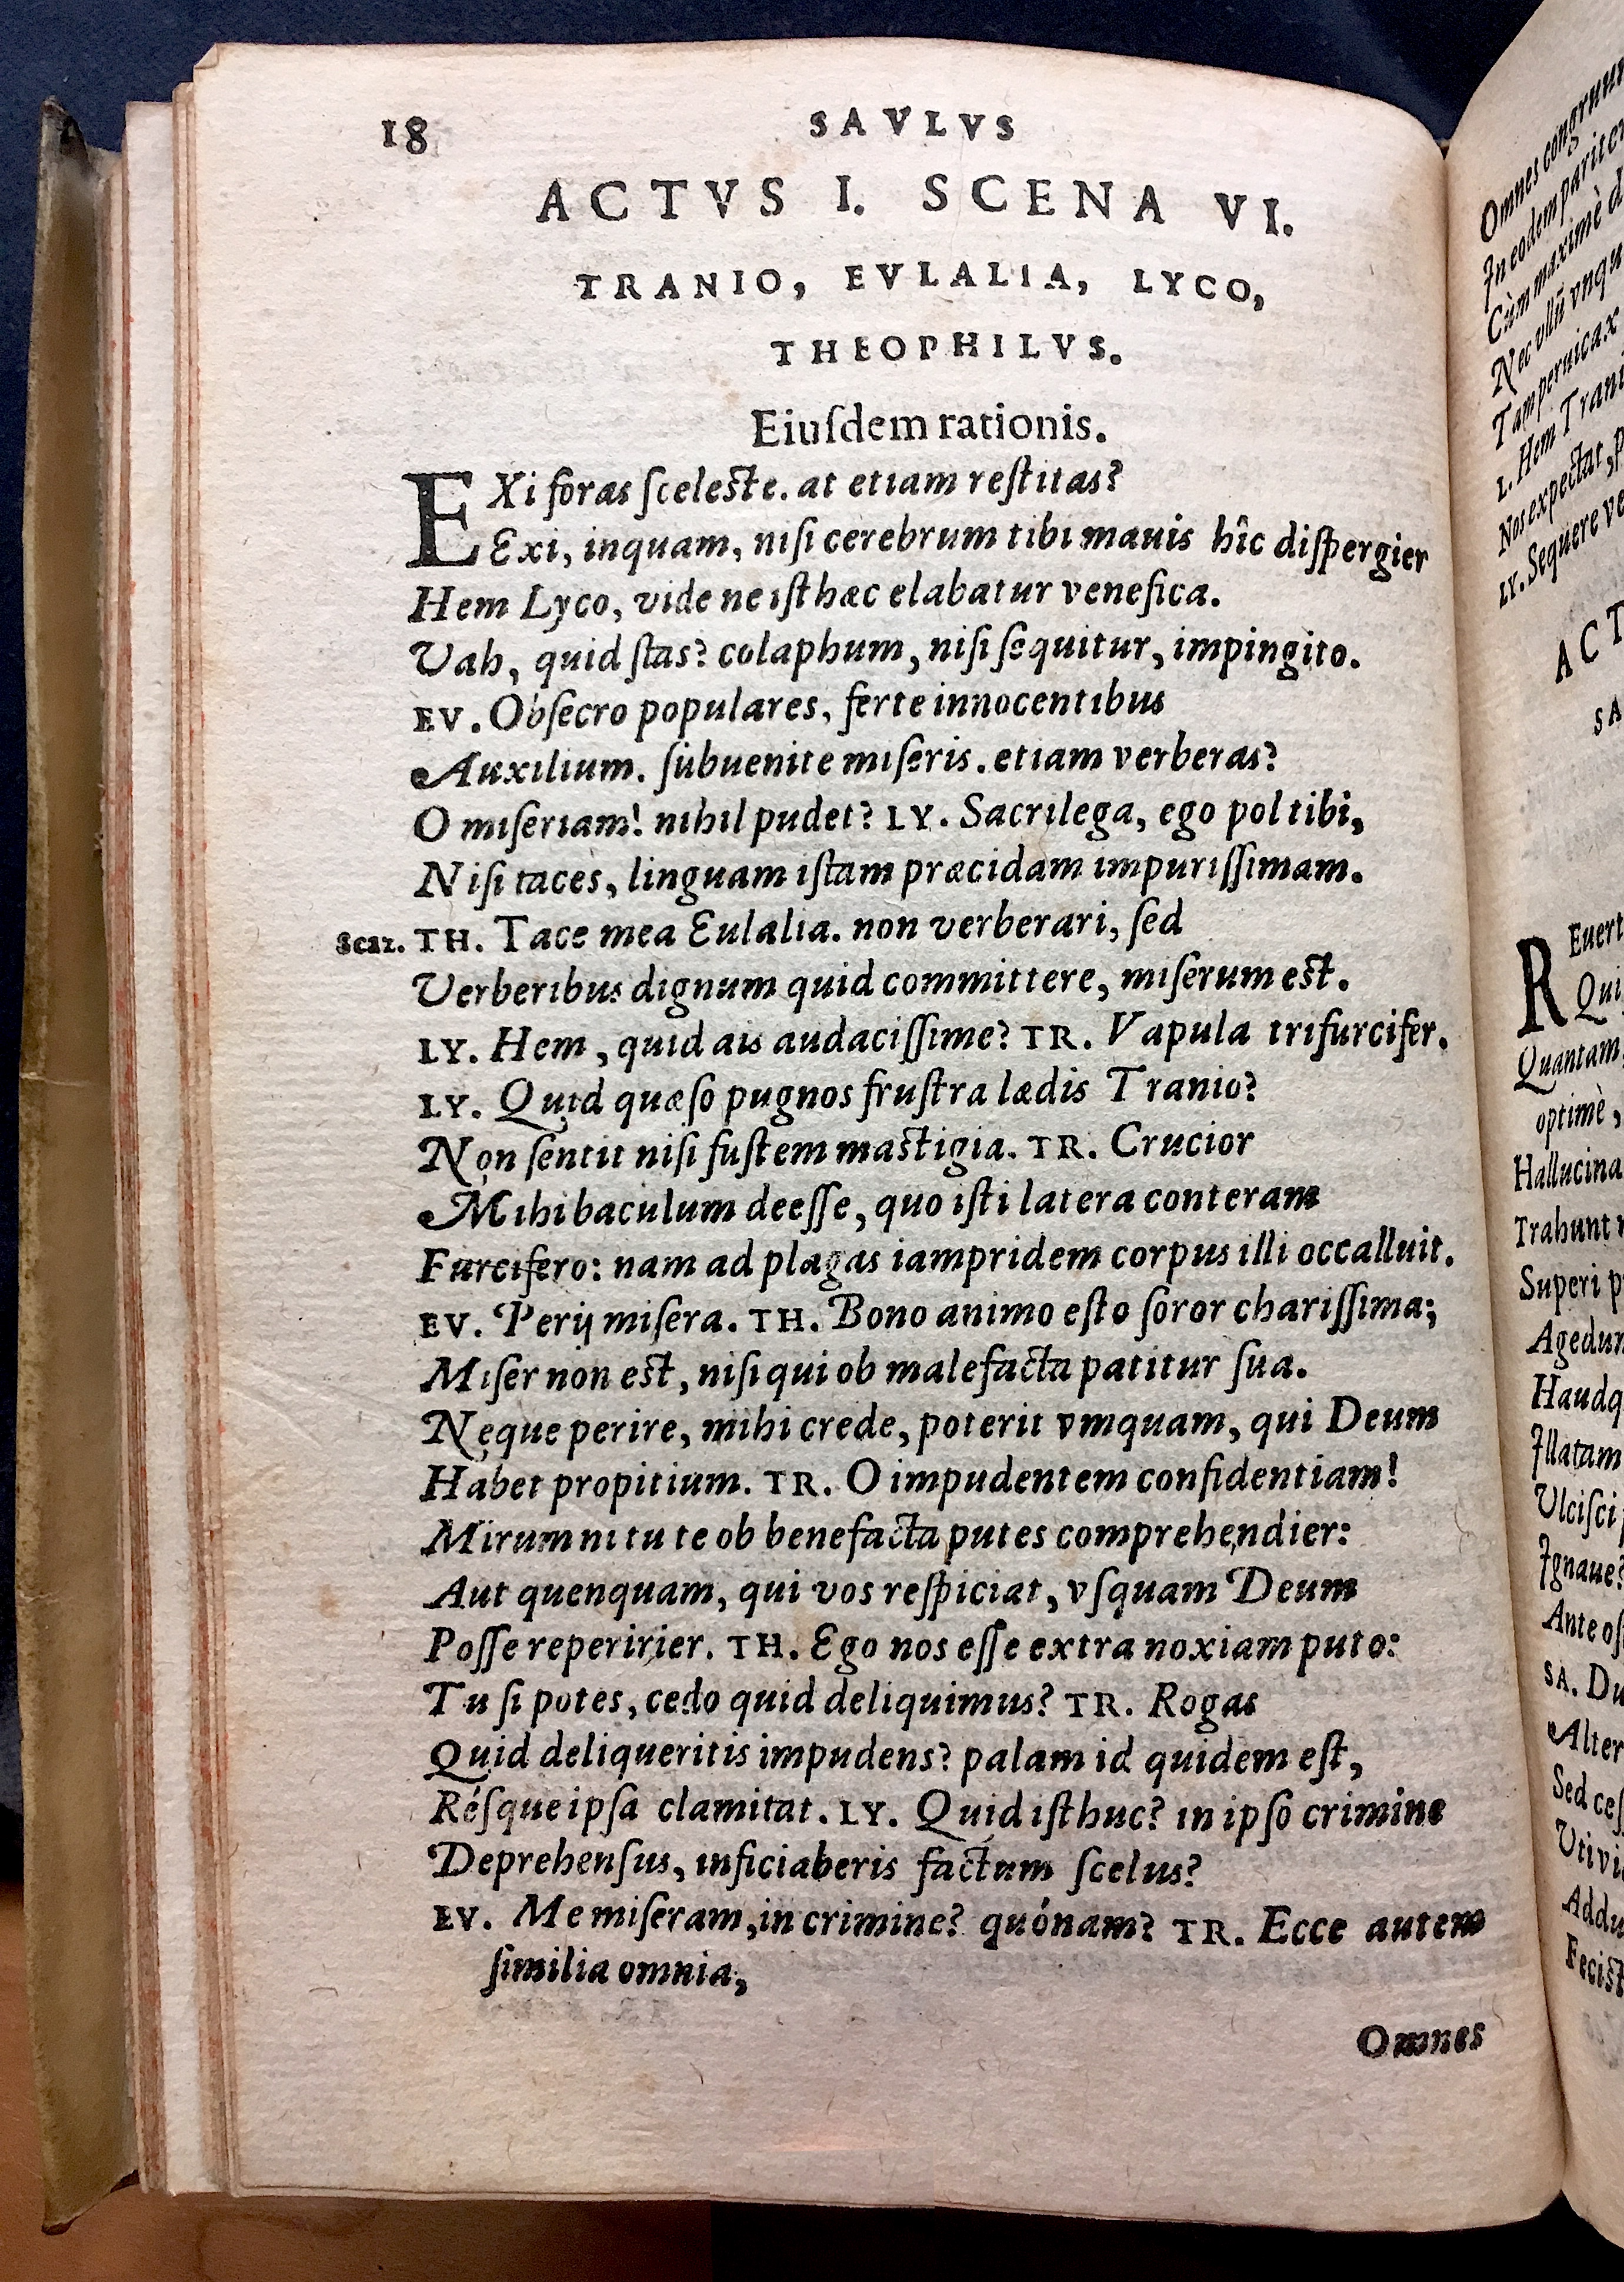 18
SAVLVS
ACTVS I. SCENA VI.
TRANIO, EVLALIA, LYCO,
THEOPHILVS.
Eiuſdem rationis.
EXi foras ſceleste. at etiam reſtitas?
Exi, inquam, niſi cerebrum tibi mauis hîc diſpergier
Hem Lyco, vide ne iſthæc elabatur venefica.
Vah, quid ſtas? colaphum, niſi ſequitur, impingito.
EV. Obſecro populares, ferte innocentibus
Auxilium. ſubuenite miſeris. etiam verberas?
O miſeriam! nihil pudet? LY. Sacrilega, ego pol tibi,
Niſi taces, linguam iſtam præcidam impuriſſimam.
TH. Tace mea Eulalia. non verberari, ſed
Verberibus dignum quid committere, miſerum est.
LY. Hem, quid ais audaciſſime? TR. Vapula trifurcifer.
LY. Quid quæſo pugnos fruſtra lædis Tranio?
Non ſentit niſi fuſtem mastigia. TR. Crucior
Mihi baculum deeſſe, quo iſti latera conteram
Furcifero: nam ad plagas iampridem corpus illi occalluit.
EV. Perij miſera. TH. Bono animo eſto ſoror chariſſima;
Miſer non est, niſi qui ob malefacta patitur ſua.
Neque perire, mihi crede, poterit vmquam, qui Deum
Habet propitium. TR. O impudentem confidentiam!
Mirum ni tu te ob benefacta putes comprehendier:
Aut quenquam, qui vos reſpiciat, vſquam Deum
Poſſe reperirier. TH. Ego nos eſſe extra noxiam puto:
Tu ſi potes, cedo quid deliquimus? TR. Rogas
Quid deliqueritis impudens? palam id quidem eſt,
Réſque ipſa clamitat. LY. Quid iſthuc? in ipſo crimine
Deprehenſus, inficiaberis factum ſcelus?
EV. Me miſeram, in crimine? quónam? TR. Ecce autem
ſimilia omnia,
Omnes
Omnes congruunt
In eodem pariter
Cùm maximè
Nec vllũ vnqu
Tam peruicax
L. Hem Tran
Nos expectat,
LY. Sequere ve
ACT
SA
REuert
Qui
Quantam
optimè,
Hallucina
Trahunt
Superi p
Agedum
Haudq
Illatam
Vlciſci
Ignaue?
Ante oſ
SA. Du
Alter
Sed ceſ
Vtivi
Addu
Feciſt